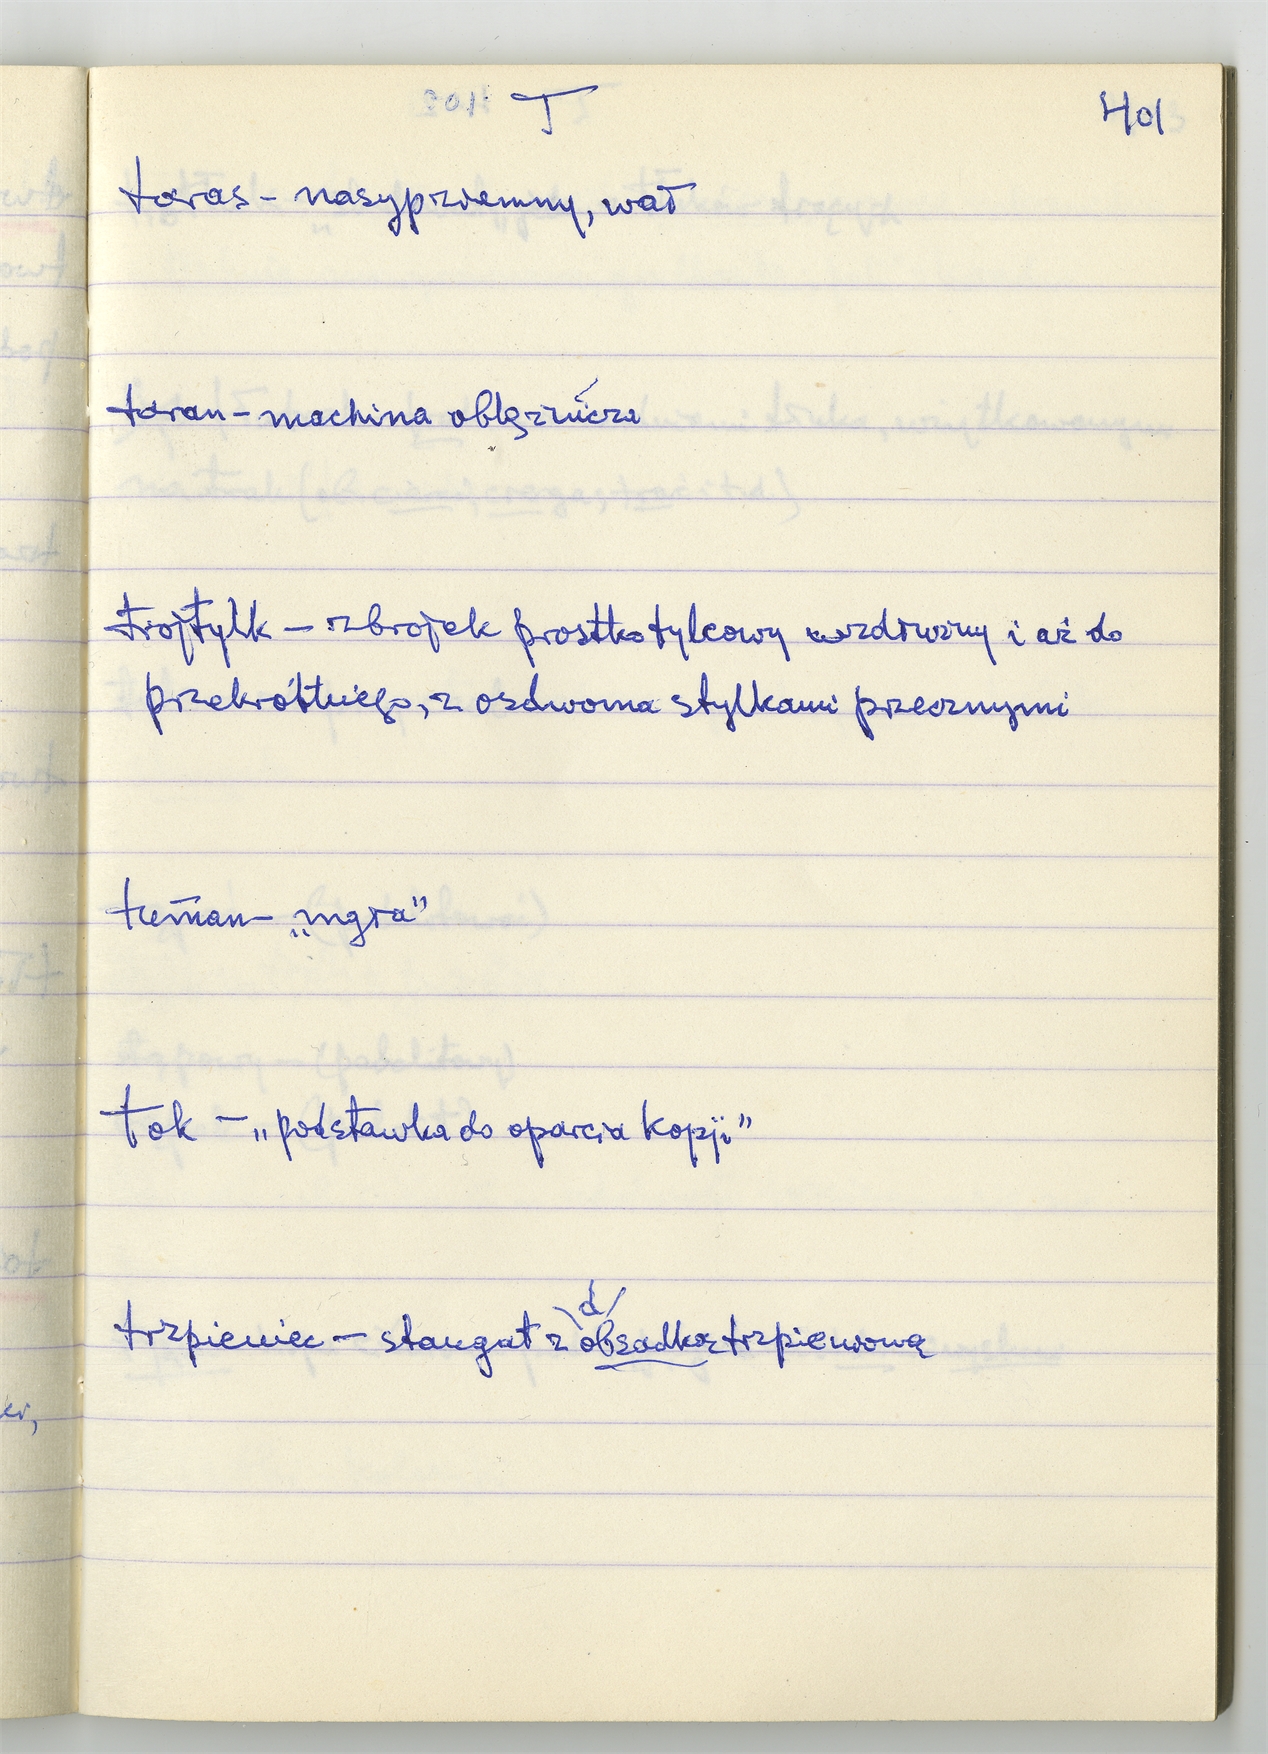 T 401
taras - nasyp ziemny, wał
taran - machina oblężnicza
trójtylk - zbrojek prostko tylcowy i aż do
z osdwoma stylkami przecznymi
tuman - „mgła”
tok - „podstawka do oparcia kopji”
d
trzpieniec - staugat z obsadką trzpieniową